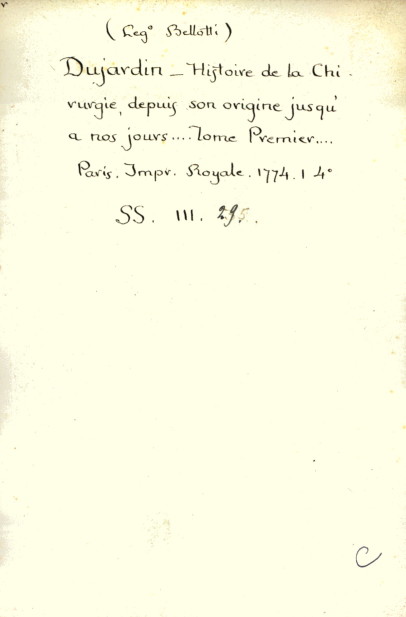 (Leg° Bellotti)
Dujardin - Histoire de la Chi-
rurgie, depuis son origine jusqu'
a nos jours.... Tome Premier....
Paris. Impr. Royale. 1774. 1 4°
SS. III. 295.
C